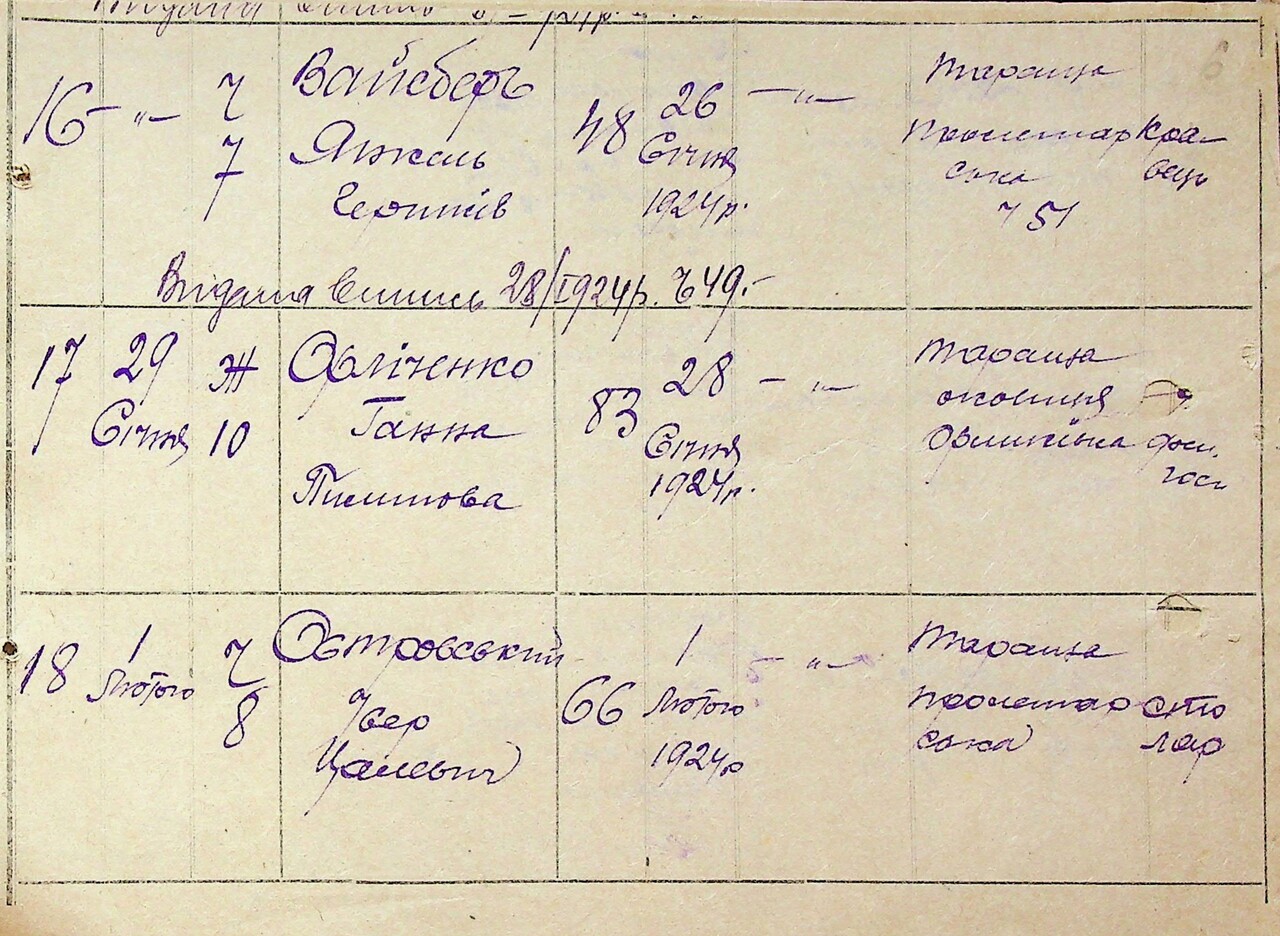 Видана
6
16 -"- Ч 7
Вайсберг
Янкель
Гершків
48
26
Січня
1924 р.
-"-
Тараща
Пролетар
ська
51
Кра-
вець
Видана випись 28/I 1924 р. № 49.-
17
29
Січня
Ж
10
Ганна
Пилипова
83
28
Січня
1924 р.
-"-
Тараща
околиця
дом.
госп
18
1
Лютого
Ч
8
Островський
Цалевич
66
1
Лютого
1924 р
-"-
Тараща
Пролетар
ська
сто
ляр